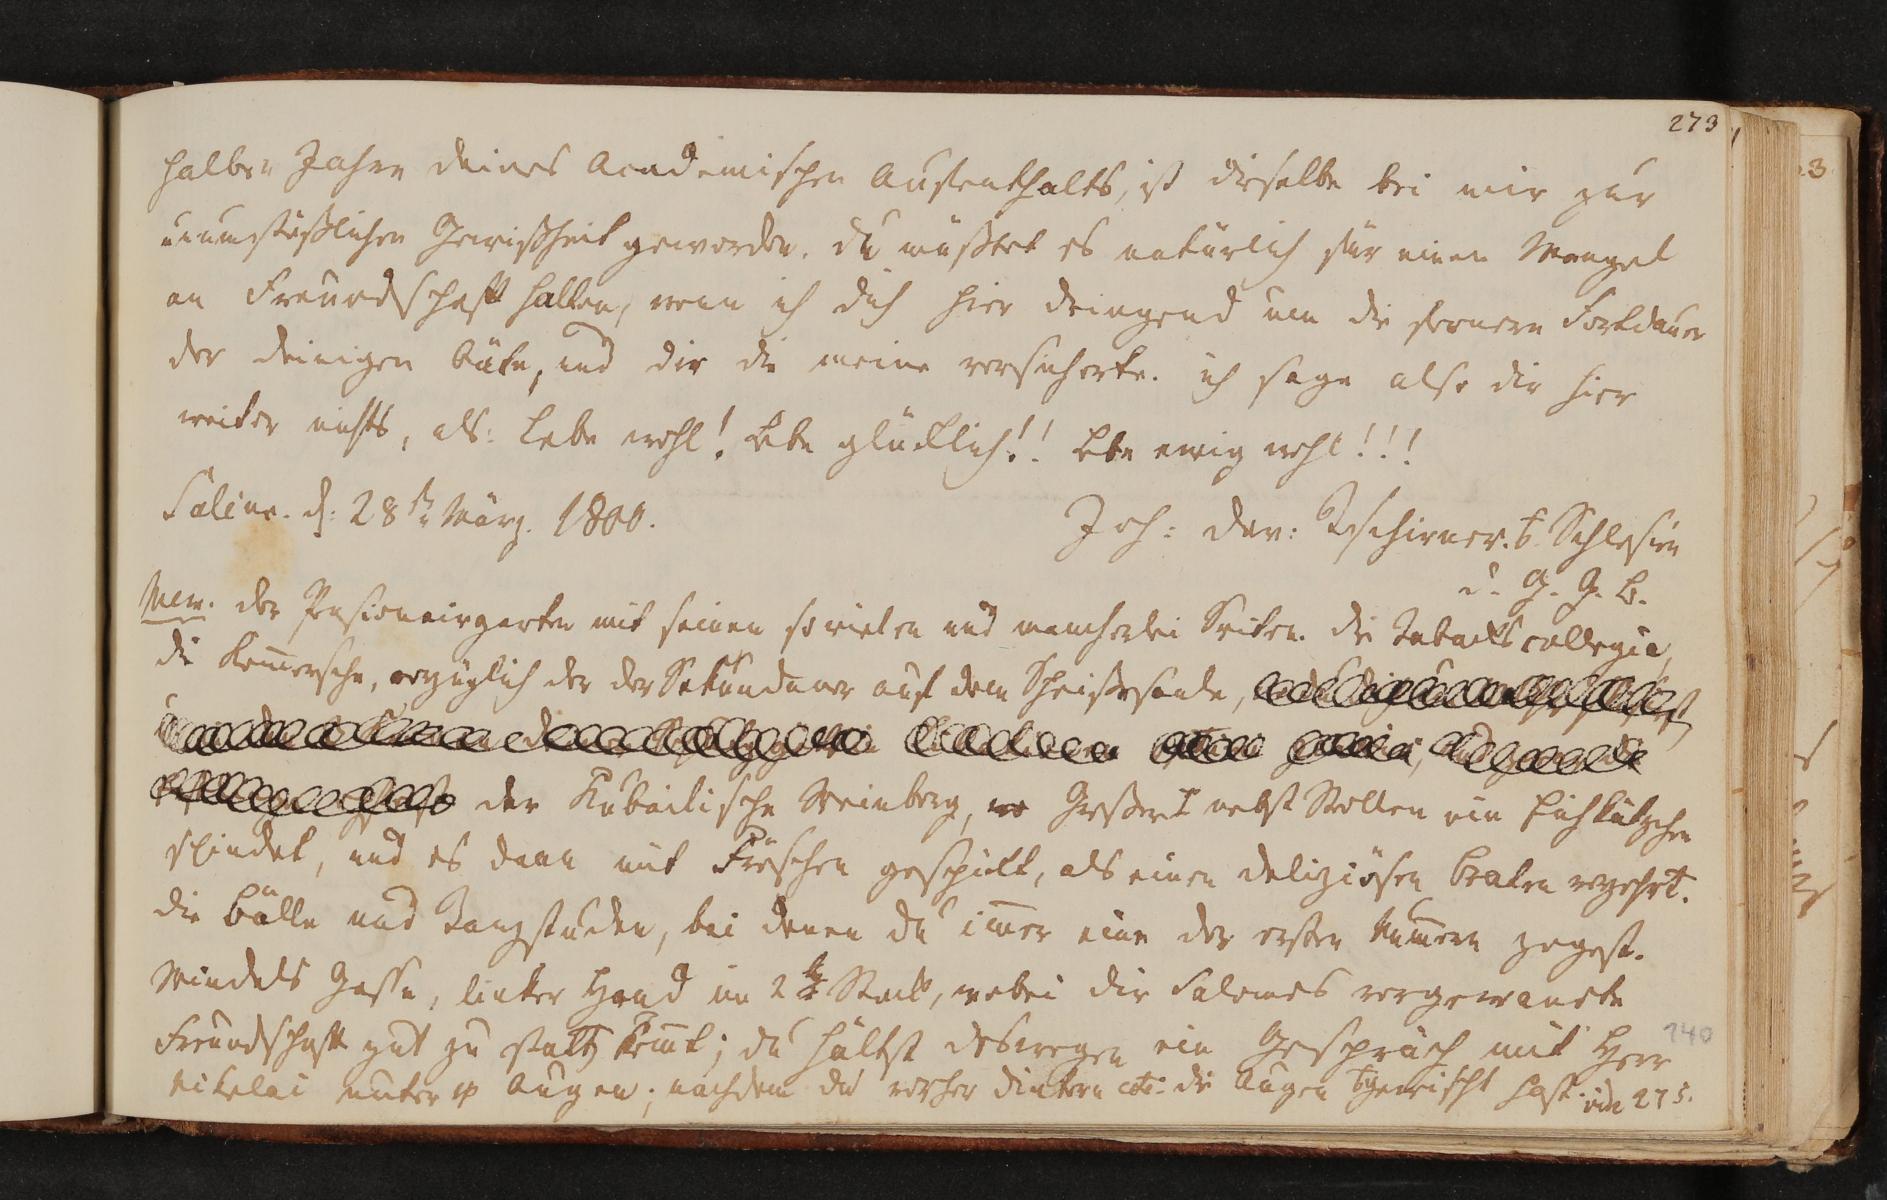 273
halben Jahre deines Academischen Aufenthalts, ist dieselbe bei mir zur
unumstößlichen Gewißheit geworden. Du müßtest es natürlich für einen Mangel
an Freundschaft halten, wenn ich dich hier dringend um die fernere Fortdauer
der deinigen bäte, und dir die meine versicherte. ich sage also dir hier
weiter nichts, als: Lebe wohl! Lebe glücklich!! Lebe ewig wohl!!!
Saline. d: 28ten März. 1800.
Joh: Dav: Tschirner. a. Schlesien
d. G. G. B.
Mem. der Pensionairgarten mit seinen so vielen und mancherlei Seiten. die Tabackscollegia,
die Kommersche, vorzüglich der der Sekundaner auf dem Speisesaale,
der Kubailische Weinberg, wo Großer I nebst Stollen ein Eichkätzchen
schindet, und es dann mit Fröschen gespickt, als einen deliziösen Braten verzehrt.
die Bälle und Tanzstuden, bei denen du immer eine der ersten Numern
Windels Gasse, linker Hand im 2ten Stock, wobei dir Salomes vorgewandte
Freundschaft gut zu statten kommt; du hältst deswegen ein Gespräch mit Herr
Nikolai unter 4 Augen; nachdem du vorher die Augen gewischt hast. vide 275.
240